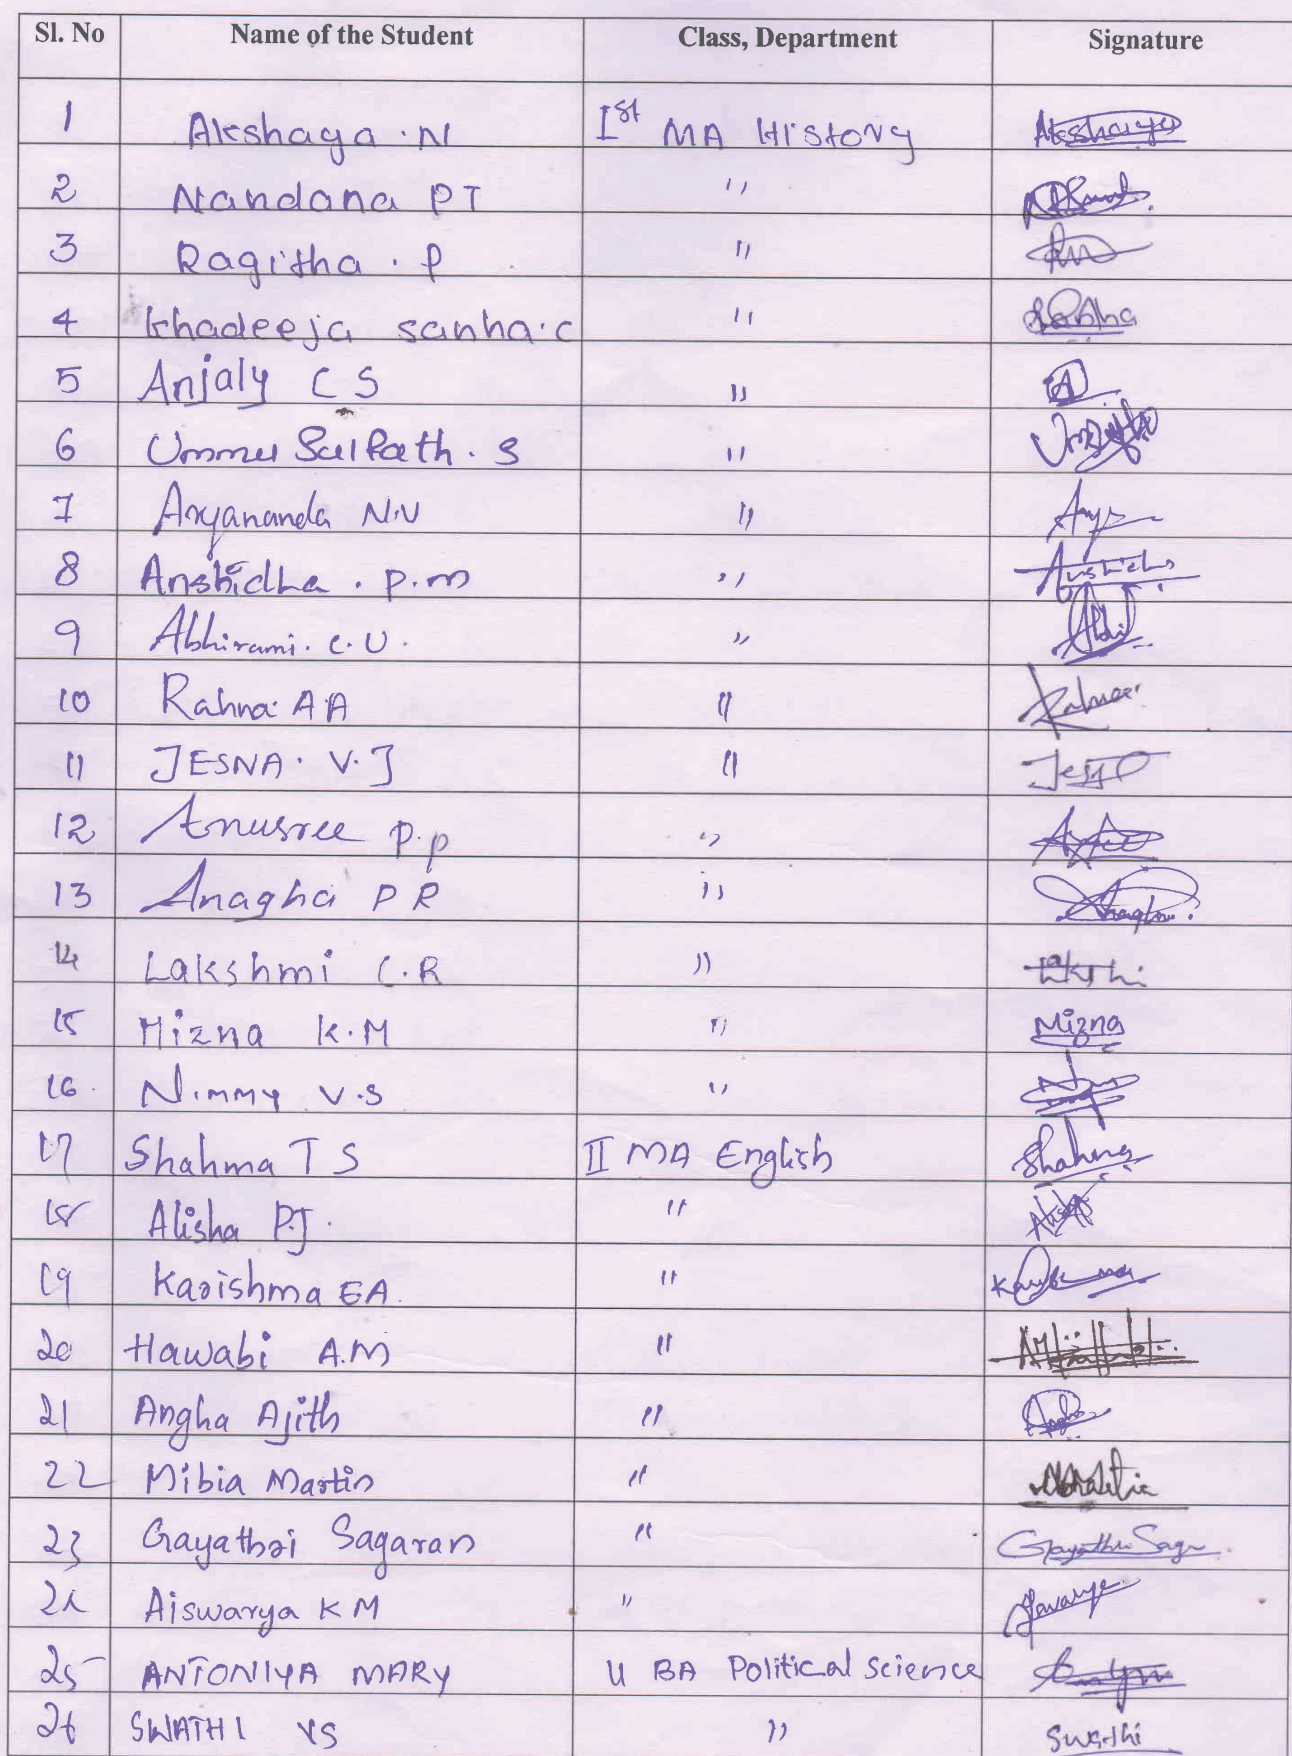 Sl. No Name of the Student Class, Department Signature
1 Akshaya . N Ist MA History Akshaya
2 Nandana P T "
3 Ragitha . P "
4 Khadeeja sanha . c " Sanha
5 Anjaly C S " A
6 Ummu Sulfath . S "
7 Aryananda N.V " Arya
8 Anshidha . p.m " Anshidha
9 Abhirami . C. U . " Abhi
10 Rahna A A " Rahna
11 JESNA . V. J "
12 Anusree p.p "
13 Anagha P R " Anagha
14 Lakshmi C.R "
15 Mizna K.M " Mizna
16 Nimmy V.S "
17 Shahma T S II MA English Shahma
18 Alisha P.J. "
19 Karishma E A. " Karishma
20 Hawabi A.M "
21 Angha Ajith "
22 Mibia Martin "
23 Gayathri Sagaran " Gayathri Sagar
24 Aiswarya K M "
25 ANTONIYA MARY II BA Political science
26 SWATHI V S " Swathi